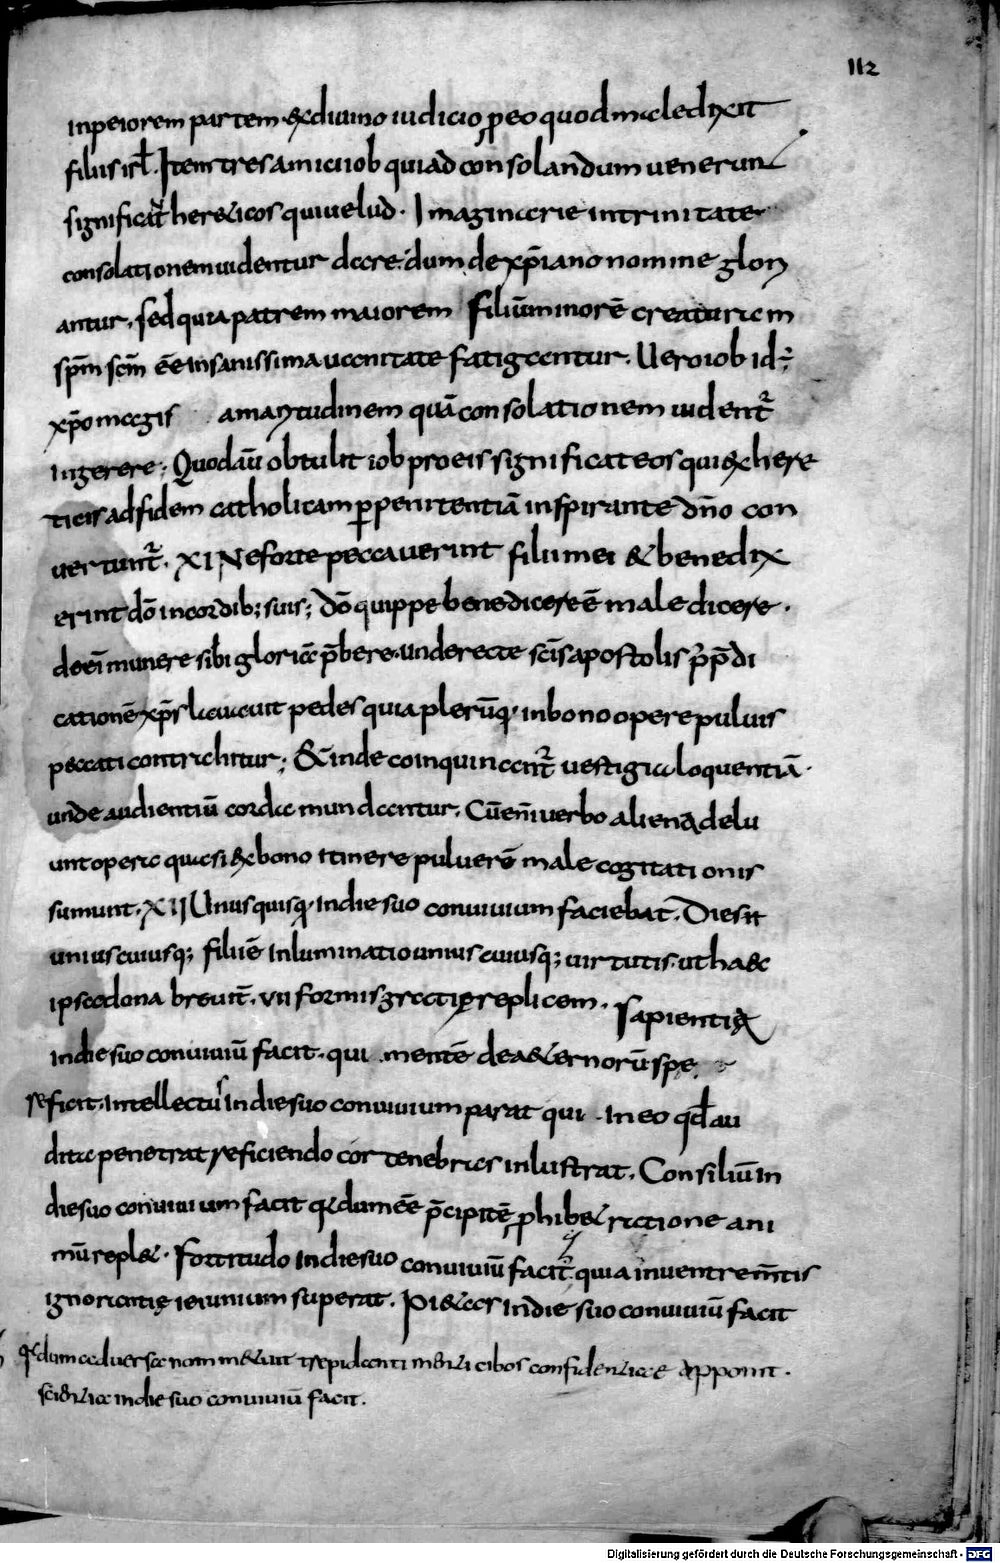 112
inpeiorem partem & diuino iudicio, p eo quod maledixit
filius isrl. Item tres amici iob qui ad consolandum uenerunt
significat hereticos qui uelud. Imaginarie in trinitate
consolationem uidentur dare. dum de xpiano nomine glori
antur, sed quia patrem maiorem filiū minorē creaturam
spm scm ēē insanissima uanitate fatigantur. Uero iob id÷
xpo magis amaritudinem quā consolationem uident̄
ingerere; Quod aū obtulit iob pro eis significat eos qui ex here
ticis ad fidem catholicam p penitentiā inspirante dn̄o con
uertunt̄. XI Ne forte peccauerint filii mei & benedix
erint dō in cordib; suis; dō quippe benedicere ē male dicere.
de ei munere sibi gloriā p̄bere. unde recte scīs apostolis p̄ p̄di
cationē xp̄s lauauit pedes quia plerūq; in bono opere puluis
peccati contrahitur; & inde coinquinant̄ uestigia loquentiā.
unde audientiū corda mundantur. Cū enī uerbo aliena delu
unt opera quasi ex bono itinere puluerē male cogitationis
sumunt. XII Unusquisq; in die suo conuiuium faciebat. Dies
unius cuiusq; filii ē inluminatio unius cuiusq; uirtutis. ut haec
ipsa dona breuit̄. VII formis gratię replicem. Sapientia
in die suo conuiuiū facit. qui mentē de aeternorū spe
reficit. Intellectus in die suo conuiuium parat qui in eo qđ au
dita penetrat reficiendo cor tenebras inlustrat. Consiliū in
die suo conuiuium facit qa dum ēē p̄cipitē phibet ratione ani
mū replet. Fortitudo in die suo conuiuiū facit quia in uentre m̄tis
ignorantię ieiunium superat. Pietas in die suo conuiuiū facit
qa dum aduersa non metuit trepidanti menti cibos confidentiae apponit.
scientia in die suo conuiuiū facit.
Digitalisierung gefördert durch die Deutsche Forschungsgemeinschaft - DFG